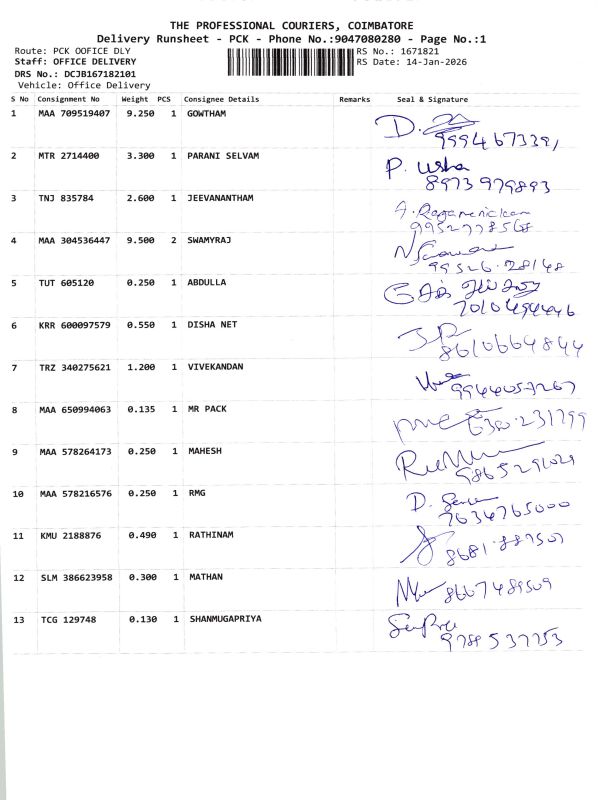 THE PROFESSIONAL COURIERS, COIMBATORE
Delivery Runsheet - PCK - Phone No.:9047080280 - Page No.:1
Route: PCK OOFICE DLY RS No.: 1671821
Staff: OFFICE DELIVERY RS Date: 14-Jan-2026
DRS No.: DCJB167182101
Vehicle: Office Delivery
S No Consignment No Weight PCS Consignee Details Remarks Seal & Signature
1 MAA 709519407 9.250 1 GOWTHAM D.
9994673391
2 MTR 2714400 3.300 1 PARANI SELVAM P. Usha
8973979893
3 TNJ 835784 2.600 1 JEEVANANTHAM
9952778568
4 MAA 304536447 9.500 2 SWAMYRAJ
99526.28148
5 TUT 605120 0.250 1 ABDULLA
7010494446
6 KRR 600097579 0.550 1 DISHA NET
8610664844
7 TRZ 340275621 1.200 1 VIVEKANDAN
9944057267
8 MAA 650994063 0.135 1 MR PACK
9 MAA 578264173 0.250 1 MAHESH
9865291029
10 MAA 578216576 0.250 1 RMG D.
7634765000
11 KMU 2188876 0.490 1 RATHINAM
12 SLM 386623958 0.300 1 MATHAN 8667489509
13 TCG 129748 0.130 1 SHANMUGAPRIYA
9788537753